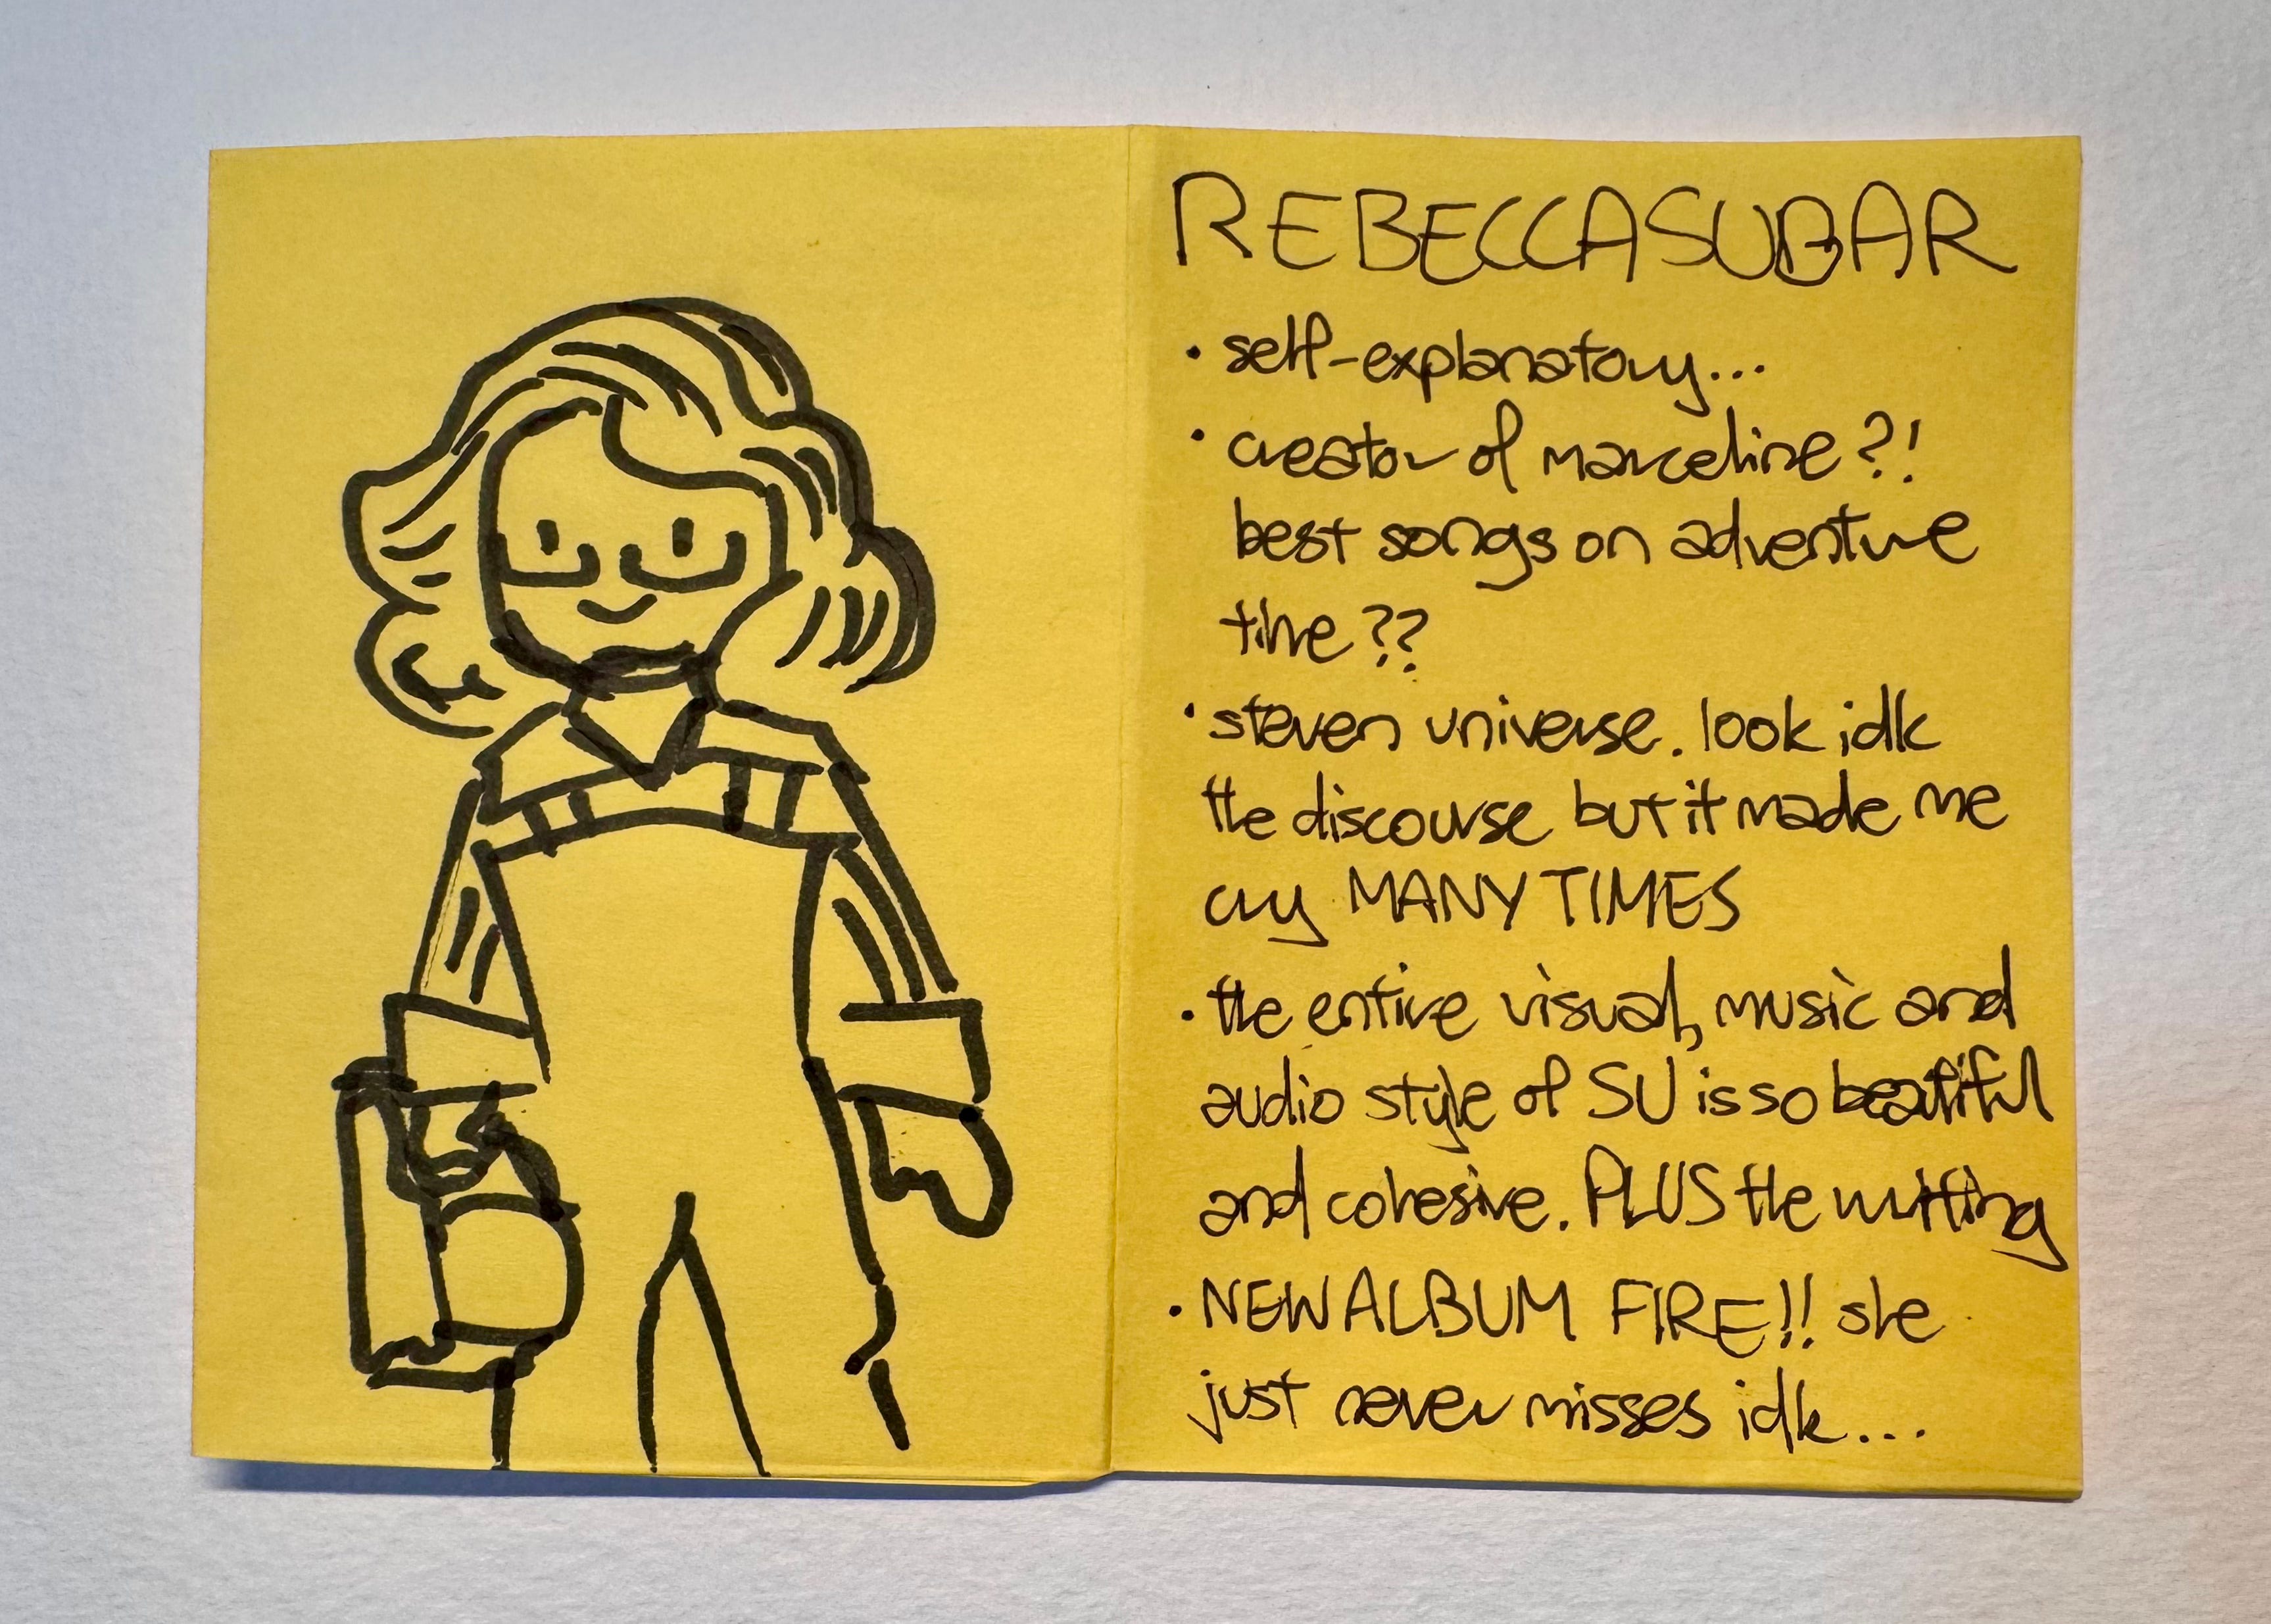 REBECCA SUGAR
• self-explanatory...
• creator of marceline?!
best songs on adventure
time??
• steven universe. look idk
the discourse but it made me
cry MANY TIMES
• the entire visual, music and
audio style of SU is so beatiful
and cohesive. PLUS the writing
• NEW ALBUM FIRE!! she
just never misses idk...